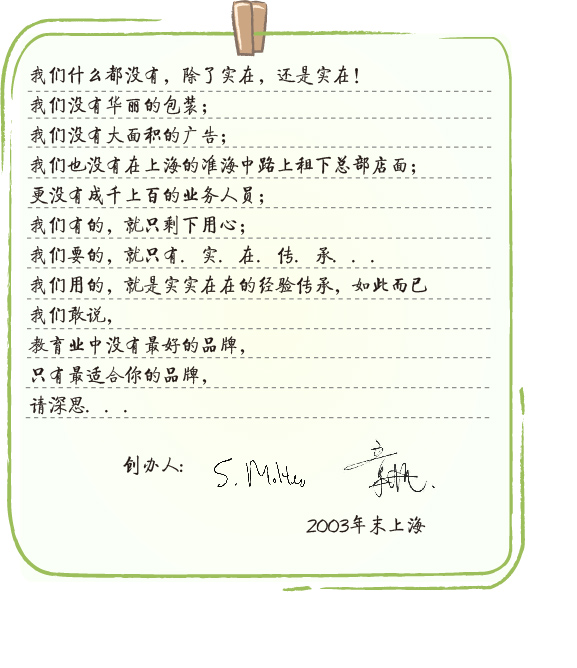 我们什么都没有，除了实在，还是实在！
我们没有华丽的包装；
我们没有大面积的广告；
我们也没有在上海的准海中路上租下总部店面；
更没有成千上百的业务人员；
我们有的，就只剩下用心；
我们要的，就只有．实．在．传．承．．．
我们用的，就是实实在在的经验传承，如此而已
我们敢说，
教育业中没有最好的品牌，
只有最适合你的品牌，
请深思．．．
创办人:
2003年末上海